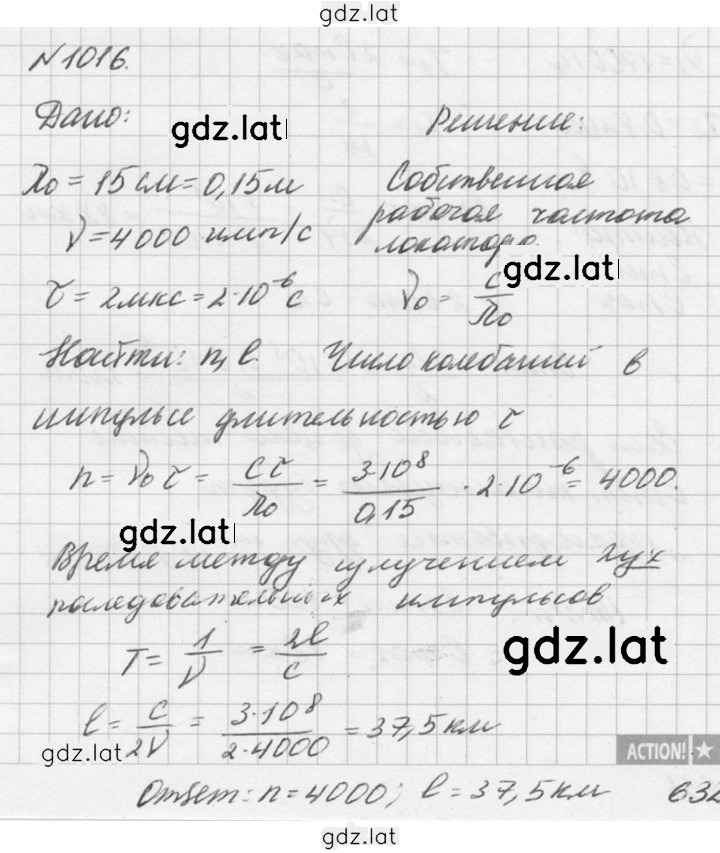 gdz.lat
N 1016.
Дано:
gdz.lat
Решение:
λ₀ = 15 см = 0,15 м
Собственная
рабочая частота
ν = 4000 имп/с
локатора.
gdz.lat
τ = 2 мкс = 2·10⁻⁶ с
ν₀ = c/λ₀
Найти: n, l.
Число колебаний в
импульсе длительностью τ
n = ν₀ τ = cτ/λ₀ = 3·10⁸/0,15 · 2·10⁻⁶ = 4000.
gdz.lat
Время между излучением двух
последовательных импульсов
T = 1/ν = 2l/c
gdz.lat
l = c/2ν = 3·10⁸/2·4000 = 37,5 км
gdz.lat
ACTION!
Ответ: n = 4000; l = 37,5 км
632
gdz.lat